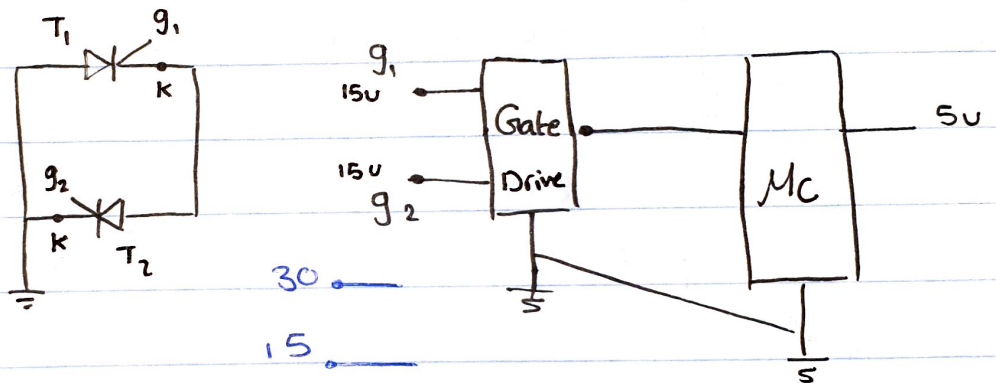 T1 g1
K
g2
K
T2
g1
15v
15v
g2
Gate
Drive
μC
5v
30
15